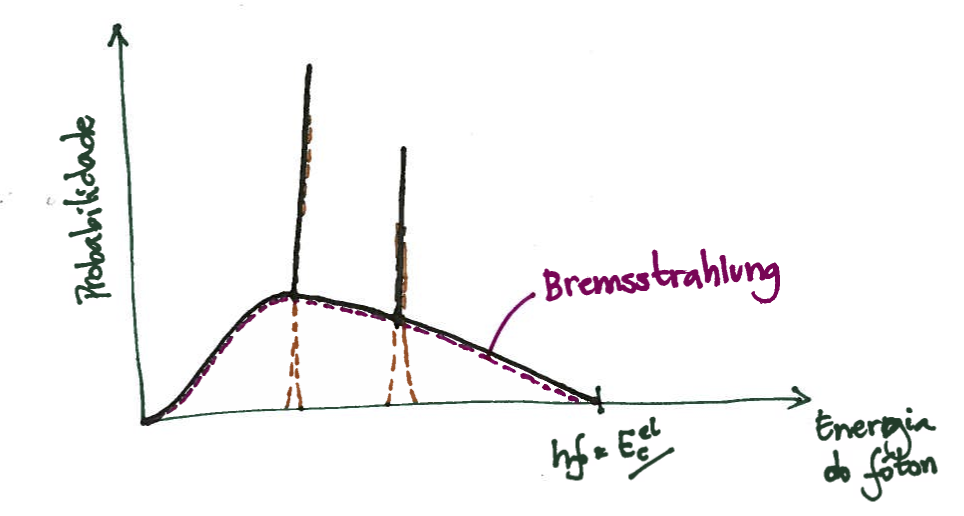 Probabilidade
Bremsstrahlung
hf = E_c^el
Energia
do fóton